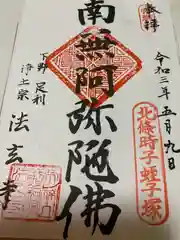 奉拝
令和三年五月九日
北條時子 蛭子塚
南無阿弥陀佛
下野 足利
浄土宗
法玄寺